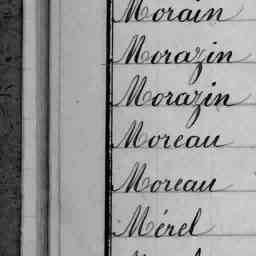 Morain
Morazin
Morazin
Moreau
Moreau
Mérel